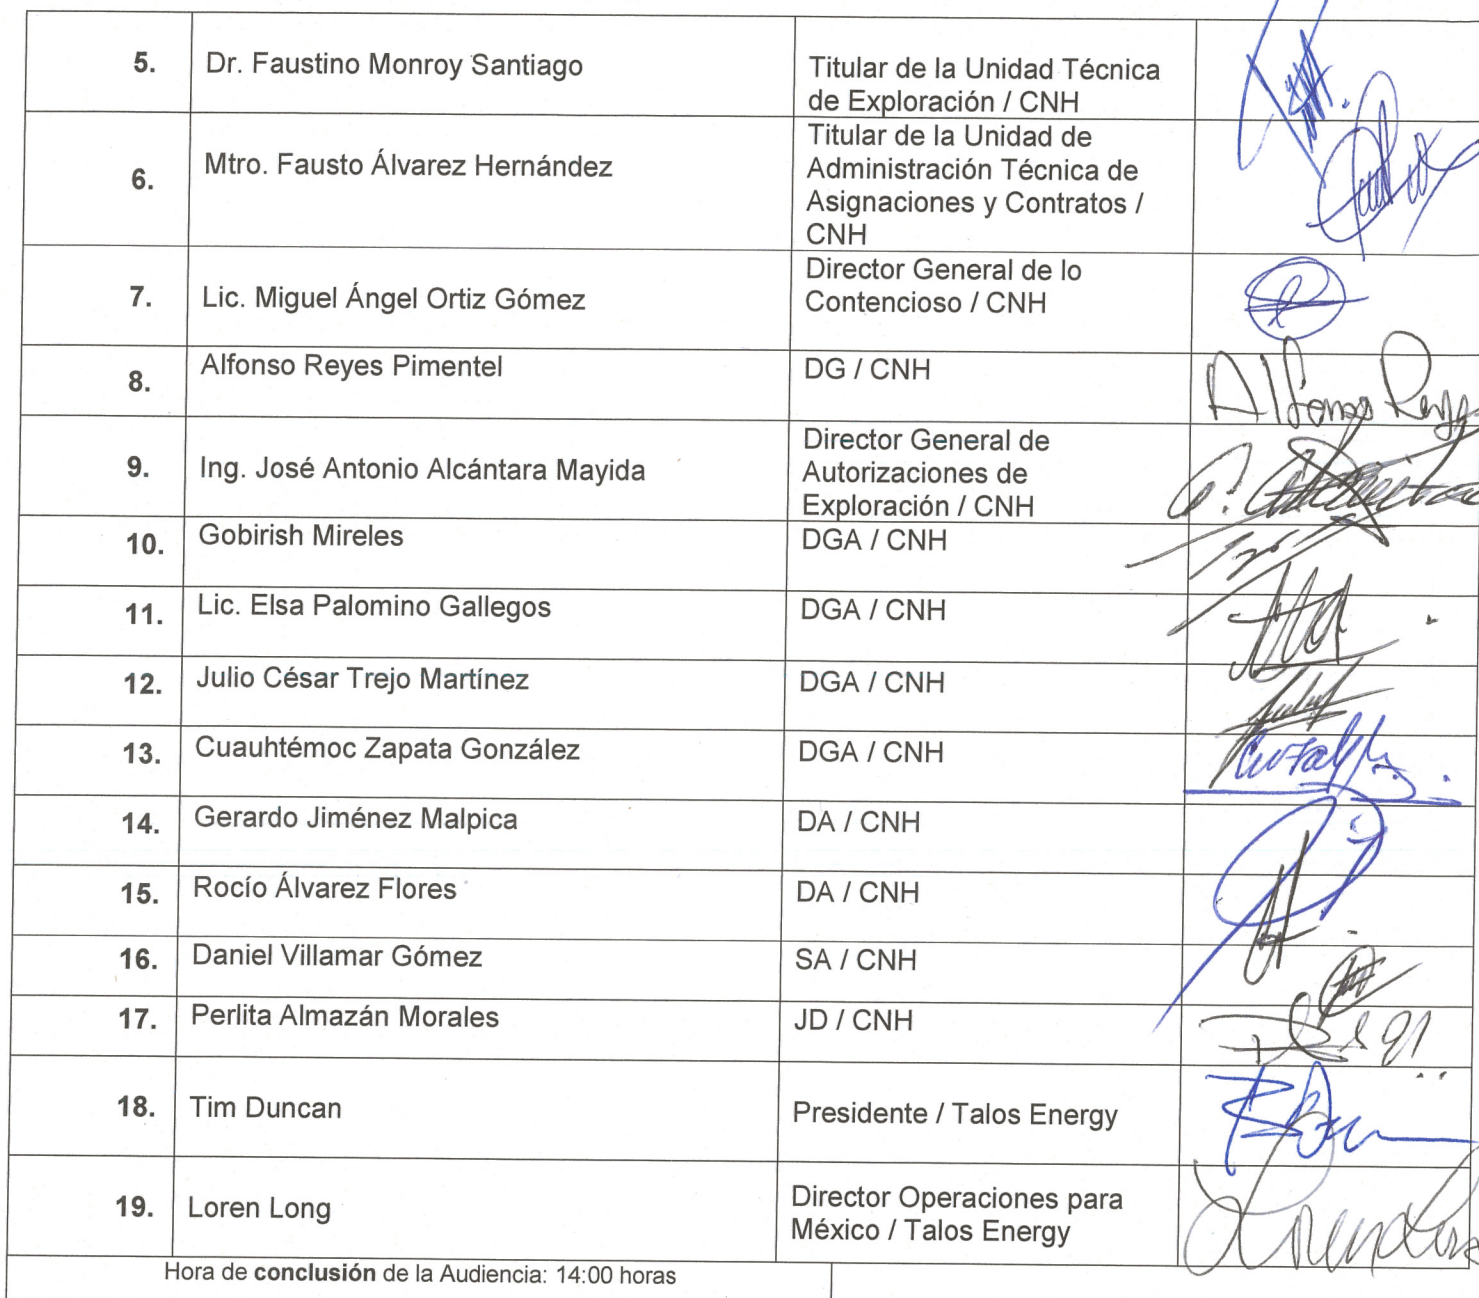 5. Dr. Faustino Monroy Santiago Titular de la Unidad Técnica
de Exploración / CNH
6. Mtro. Fausto Álvarez Hernández Titular de la Unidad de
Administración Técnica de
Asignaciones y Contratos /
CNH
7. Lic. Miguel Ángel Ortiz Gómez Director General de lo
Contencioso / CNH
8. Alfonso Reyes Pimentel DG / CNH Alfonso Reyes
9. Ing. José Antonio Alcántara Mayida Director General de
Autorizaciones de
Exploración / CNH
10. Gobirish Mireles DGA / CNH
11. Lic. Elsa Palomino Gallegos DGA / CNH
12. Julio César Trejo Martínez DGA / CNH
13. Cuauhtémoc Zapata González DGA / CNH
14. Gerardo Jiménez Malpica DA / CNH
15. Rocío Álvarez Flores DA / CNH
16. Daniel Villamar Gómez SA / CNH
17. Perlita Almazán Morales JD / CNH
18. Tim Duncan Presidente / Talos Energy
19. Loren Long Director Operaciones para
México / Talos Energy
Hora de conclusión de la Audiencia: 14:00 horas